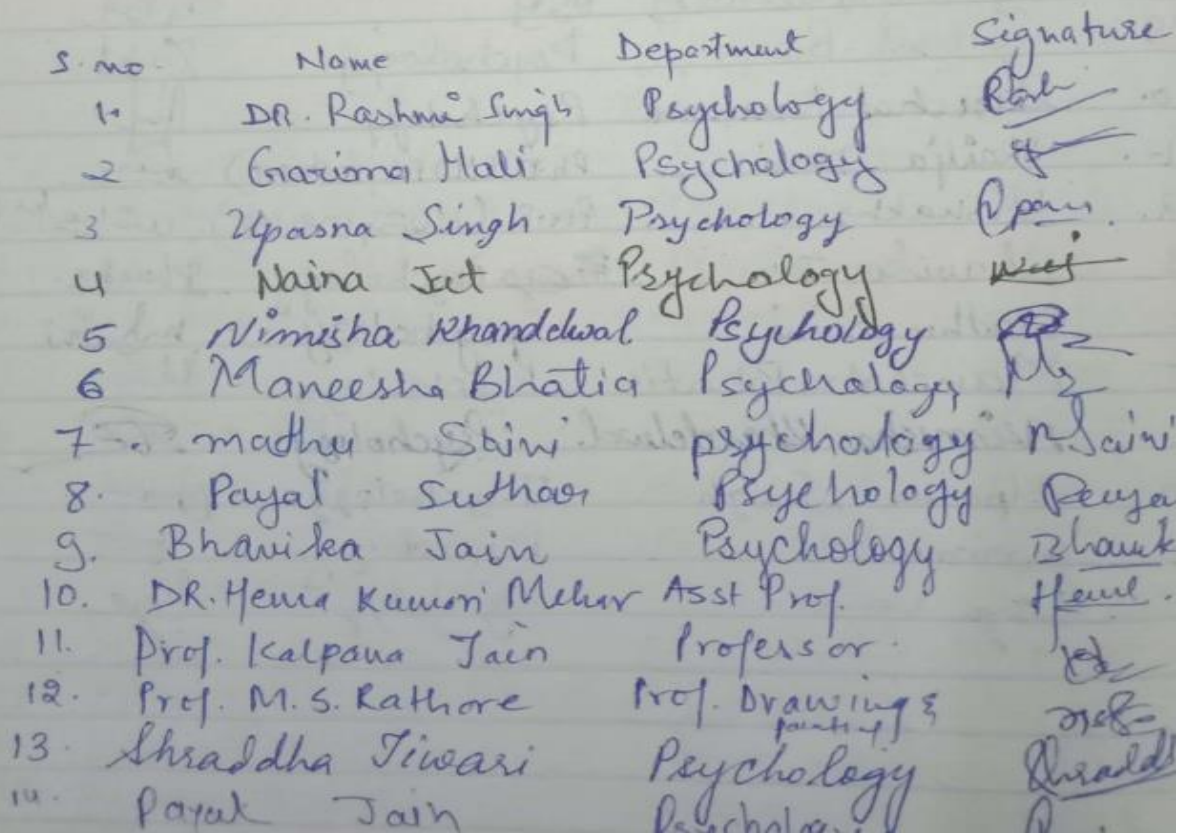 S. no. Name Department Signature
1. DR. Rashmi Singh Psychology Rash
2 Garima Mali Psychology
3 Upasna Singh Psychology
4 Naina Jat Psychology
5 Nimisha Khandelwal Psychology
6 Maneesha Bhatia Psychology
7. madhu Saini psychology M Saini
8. Payal Suthar Psychology
9. Bhavika Jain Psychology Bhavik
10. DR. Hema Kumari Mehar Asst Prof.
11. Prof. Kalpana Jain Professor.
12. Prof. M. S. Rathore Prof. Drawing &
painting
13. Shraddha Tiwari Psychology Shradd
14. Payal Jain Psychology